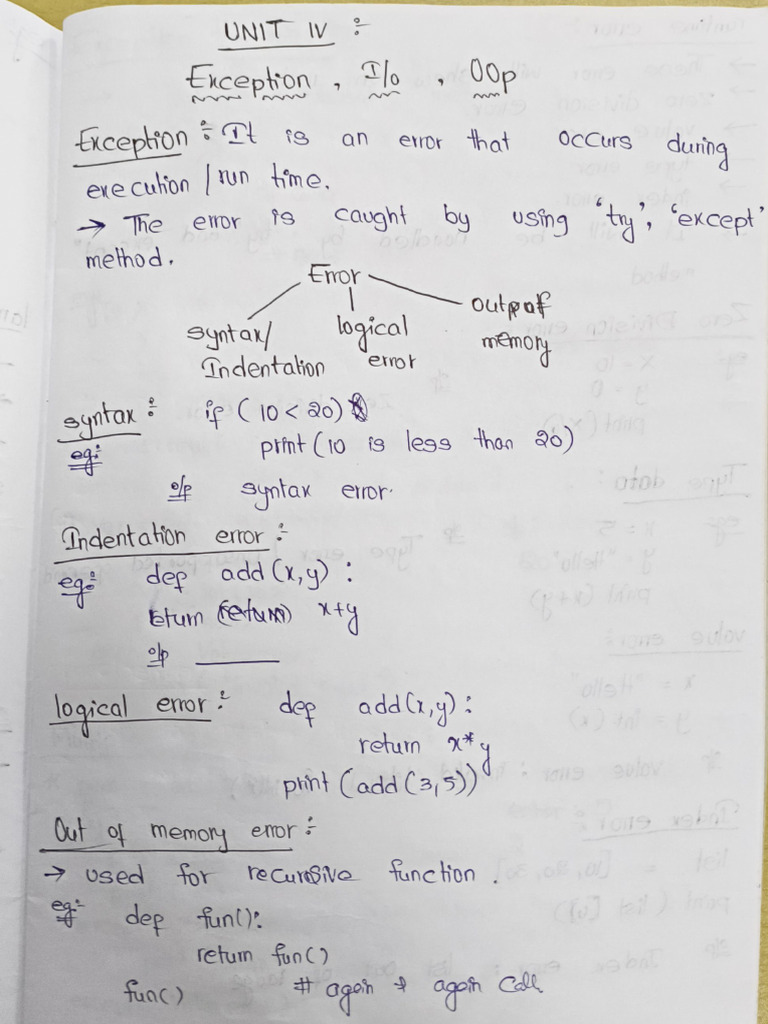 UNIT IV :-
Exception , I/o , OOp
Exception :- It is an error that occurs during
execution / run time.
→ The error is caught by using 'try', 'except'
method.
Error
syntax/ Indentation
logical error
memory
syntax :- if ( 10 < 20)
eg:- print (10 is less than 20)
o/p syntax error.
Indentation error :-
eg:- def add (x,y) :
(return) x+y
o/p ______
logical error :- def add(x,y) :
return x*y
print (add (3,5))
Out of memory error :-
→ used for recursive function .
eg:- def fun():
return fun()
fun() # again & again call